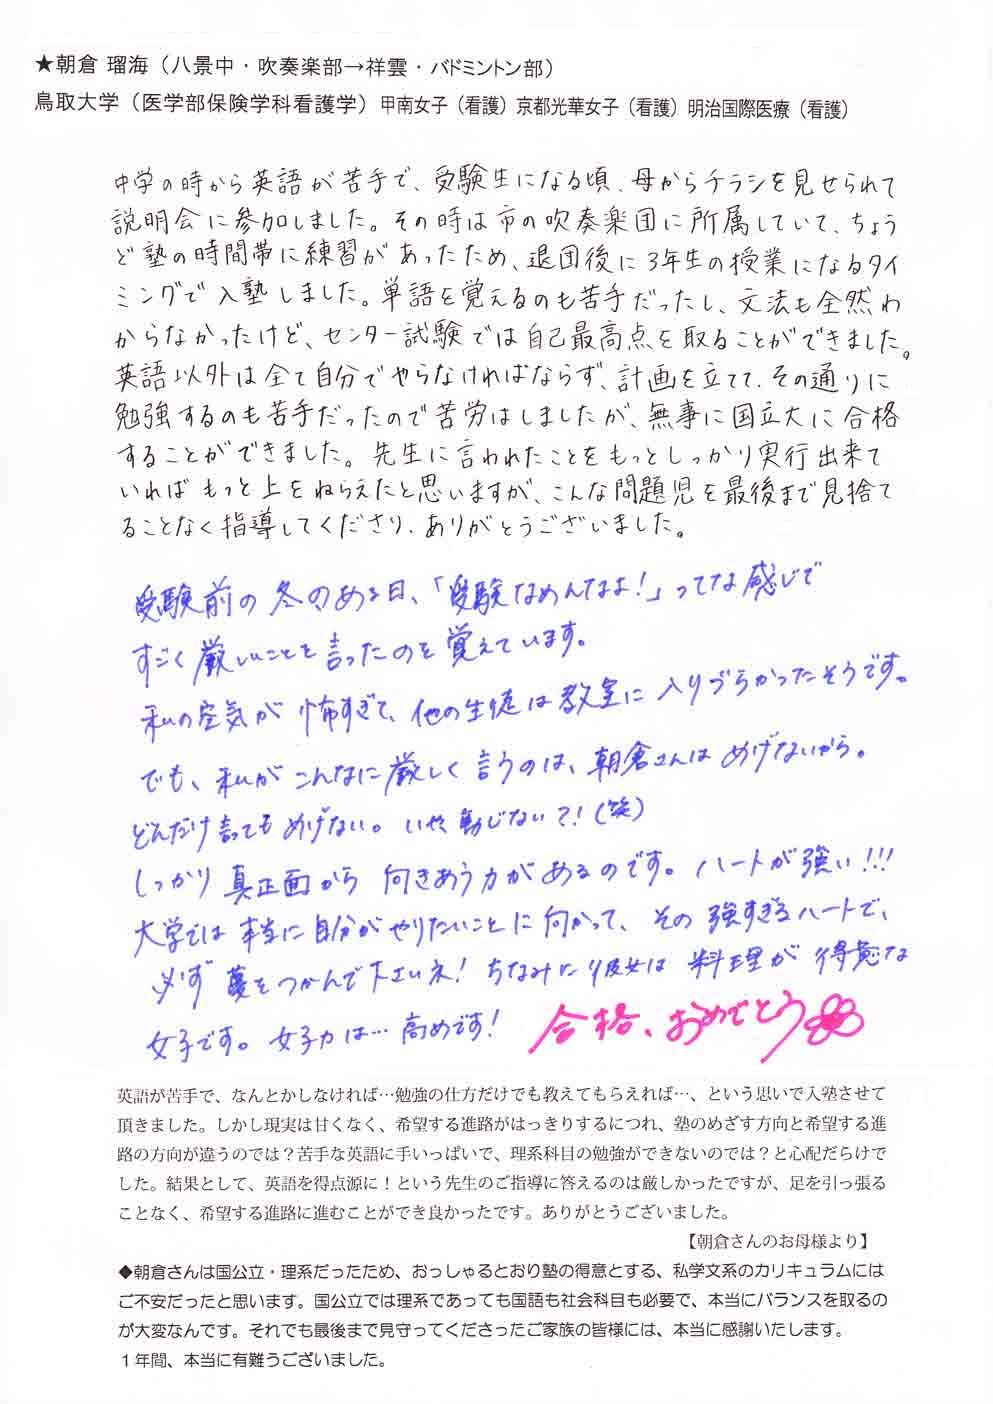 ★朝倉 瑠海（八景中・吹奏楽部→祥雲・バドミントン部）
鳥取大学（医学部保険学科看護学）甲南女子（看護）京都光華女子（看護）明治国際医療（看護）
中学の時から英語が苦手で、受験生になる頃、母からチラシを見せられて
説明会に参加しました。その時は市の吹奏楽団に所属していて、ちょう
ど塾の時間帯に練習があったため、退団後に3年生の授業になるタイ
ミングで入塾しました。単語を覚えるのも苦手だったし、文法も全然わ
からなかったけど、センター試験では自己最高点を取ることができました。
英語以外は全て自分でやらなければならず、計画を立てて、その通りに
勉強するのも苦手だったので苦労はしましたが、無事に国立大に合格
することができました。先生に言われたことをもっとしっかり実行出来て
いればもっと上をねらえたと思いますが、こんな問題児を最後まで見捨て
ることなく指導してくださり、ありがとうございました。
受験前の冬のある日、「受験なめんなよ！」ってな感じで
すごく厳しいことを言ったのを覚えています。
私の空気が怖すぎて、他の生徒は教室に入りづらかったそうです。
でも、私がこんなに厳しく言うのは、朝倉さんはめげないから。
どんだけ言ってもめげない。いや、動じない？！（笑）
しっかり真正面から向きあう力があるのです。ハートが強い!!!
大学では本当に自分がやりたいことに向かって、その強すぎるハートで、
必ず夢をつかんで下さいネ！ちなみに彼女は料理が得意な
女子です。女子力は…高めです！合格、おめでとう
英語が苦手で、なんとかしなければ…勉強の仕方だけでも教えてもらえれば…、という思いで入塾させて
頂きました。しかし現実は甘くなく、希望する進路がはっきりするにつれ、塾のめざす方向と希望する進
路の方向が違うのでは？苦手な英語に手いっぱいで、理系科目の勉強ができないのでは？と心配だらけで
した。結果として、英語を得点源に！という先生のご指導に答えるのは厳しかったですが、足を引っ張る
ことなく、希望する進路に進むことができ良かったです。ありがとうございました。
【朝倉さんのお母様より】
◆朝倉さんは国公立・理系だったため、おっしゃるとおり塾の得意とする、私学文系のカリキュラムには
ご不安だったと思います。国公立では理系であっても国語も社会科目も必要で、本当にバランスを取るの
が大変なんです。それでも最後まで見守ってくださったご家族の皆様には、本当に感謝いたします。
１年間、本当に有難うございました。